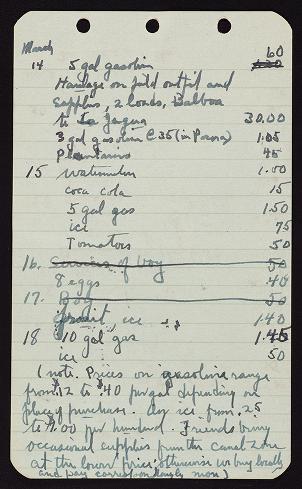 March
60
14 5 gal gasolin
Haulage on field outfit and
supplies, 2 loads, Balboa
to La Jagua 30.00
3 gal gasolin @ 35 (in Pacora) 1.05
Plantains 45
15 Watermelon 1.00
coca cola 15
5 gal gas 1.50
ice 75
Tomatoes 50
16. Services of boy 50
8 eggs 40
17. Boy 50
fruit, ice 1.40
18 10 gal gas 1.45
ice 50
(note. Prices on gasoline range
from 12 to $.40 per gal depending on
place of purchase. Also ice from .25
to 1.00 per hundred. Friends bring
occasional supplies from the Canal Zone
at the lower price, otherwise we buy locally
and pay correspondingly more)